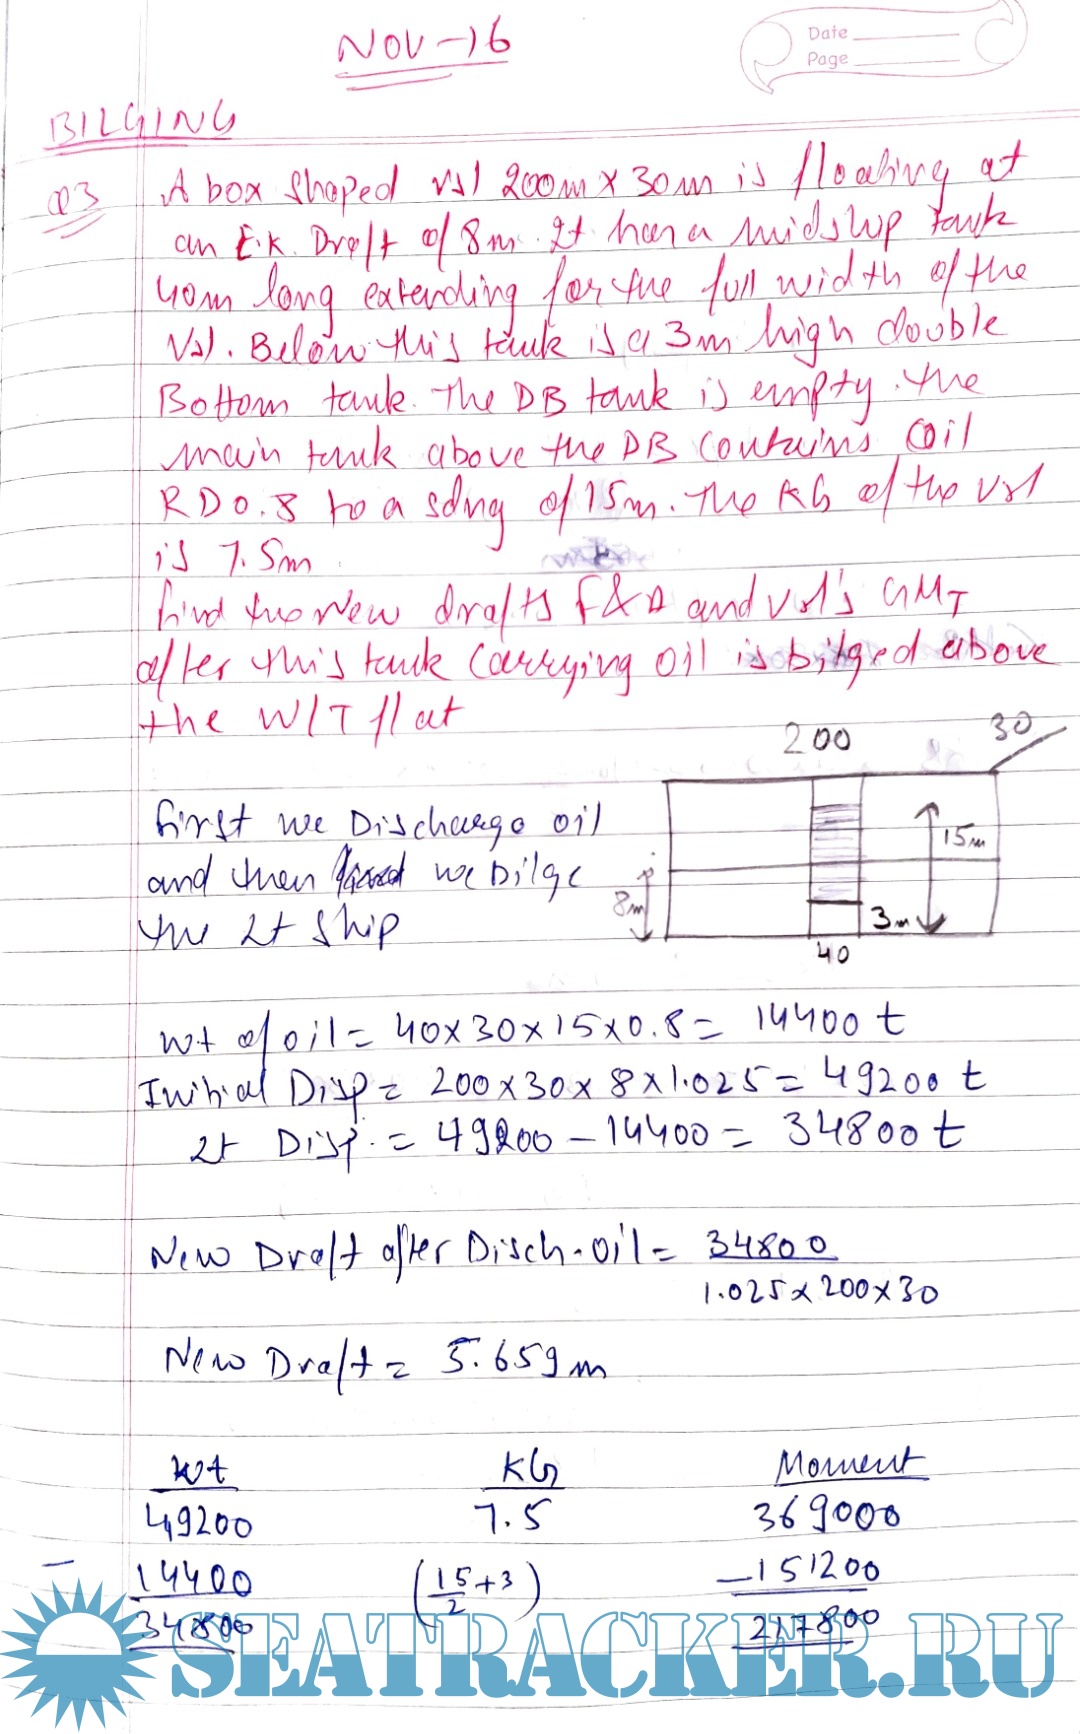 NOV-16
Date
Page
BILGING
Q3 A box shaped vsl 200m x 30m is floating at
an E.K. Draft of 8m. It has a midship tank
40m long extending for the full width of the
Vsl. Below this tank is a 3m high double
Bottom tank. The DB tank is empty. The
main tank above the DB contains oil
RD 0.8 to a sdng of 15m. The KG of the vsl
is 7.5m
find the New drafts F&A and Vsl's GMT
after this tank carrying oil is bilged above
the W/T flat
200
30
first we Discharge oil
and then we Bilge
the Lt ship
15m
8m
3m
40
Wt of oil = 40x30x15x0.8 = 14400 t
Initial Disp = 200x30x8x1.025 = 49200 t
Lt Disp. = 49200 - 14400 = 34800 t
New Draft after Disch. oil = 34800
1.025x200x30
New Draft = 5.659m
Wt KG Moment
49200 7.5 369000
- 14400 (15/2 + 3) -151200
34800 217800
SEATRACKER.RU